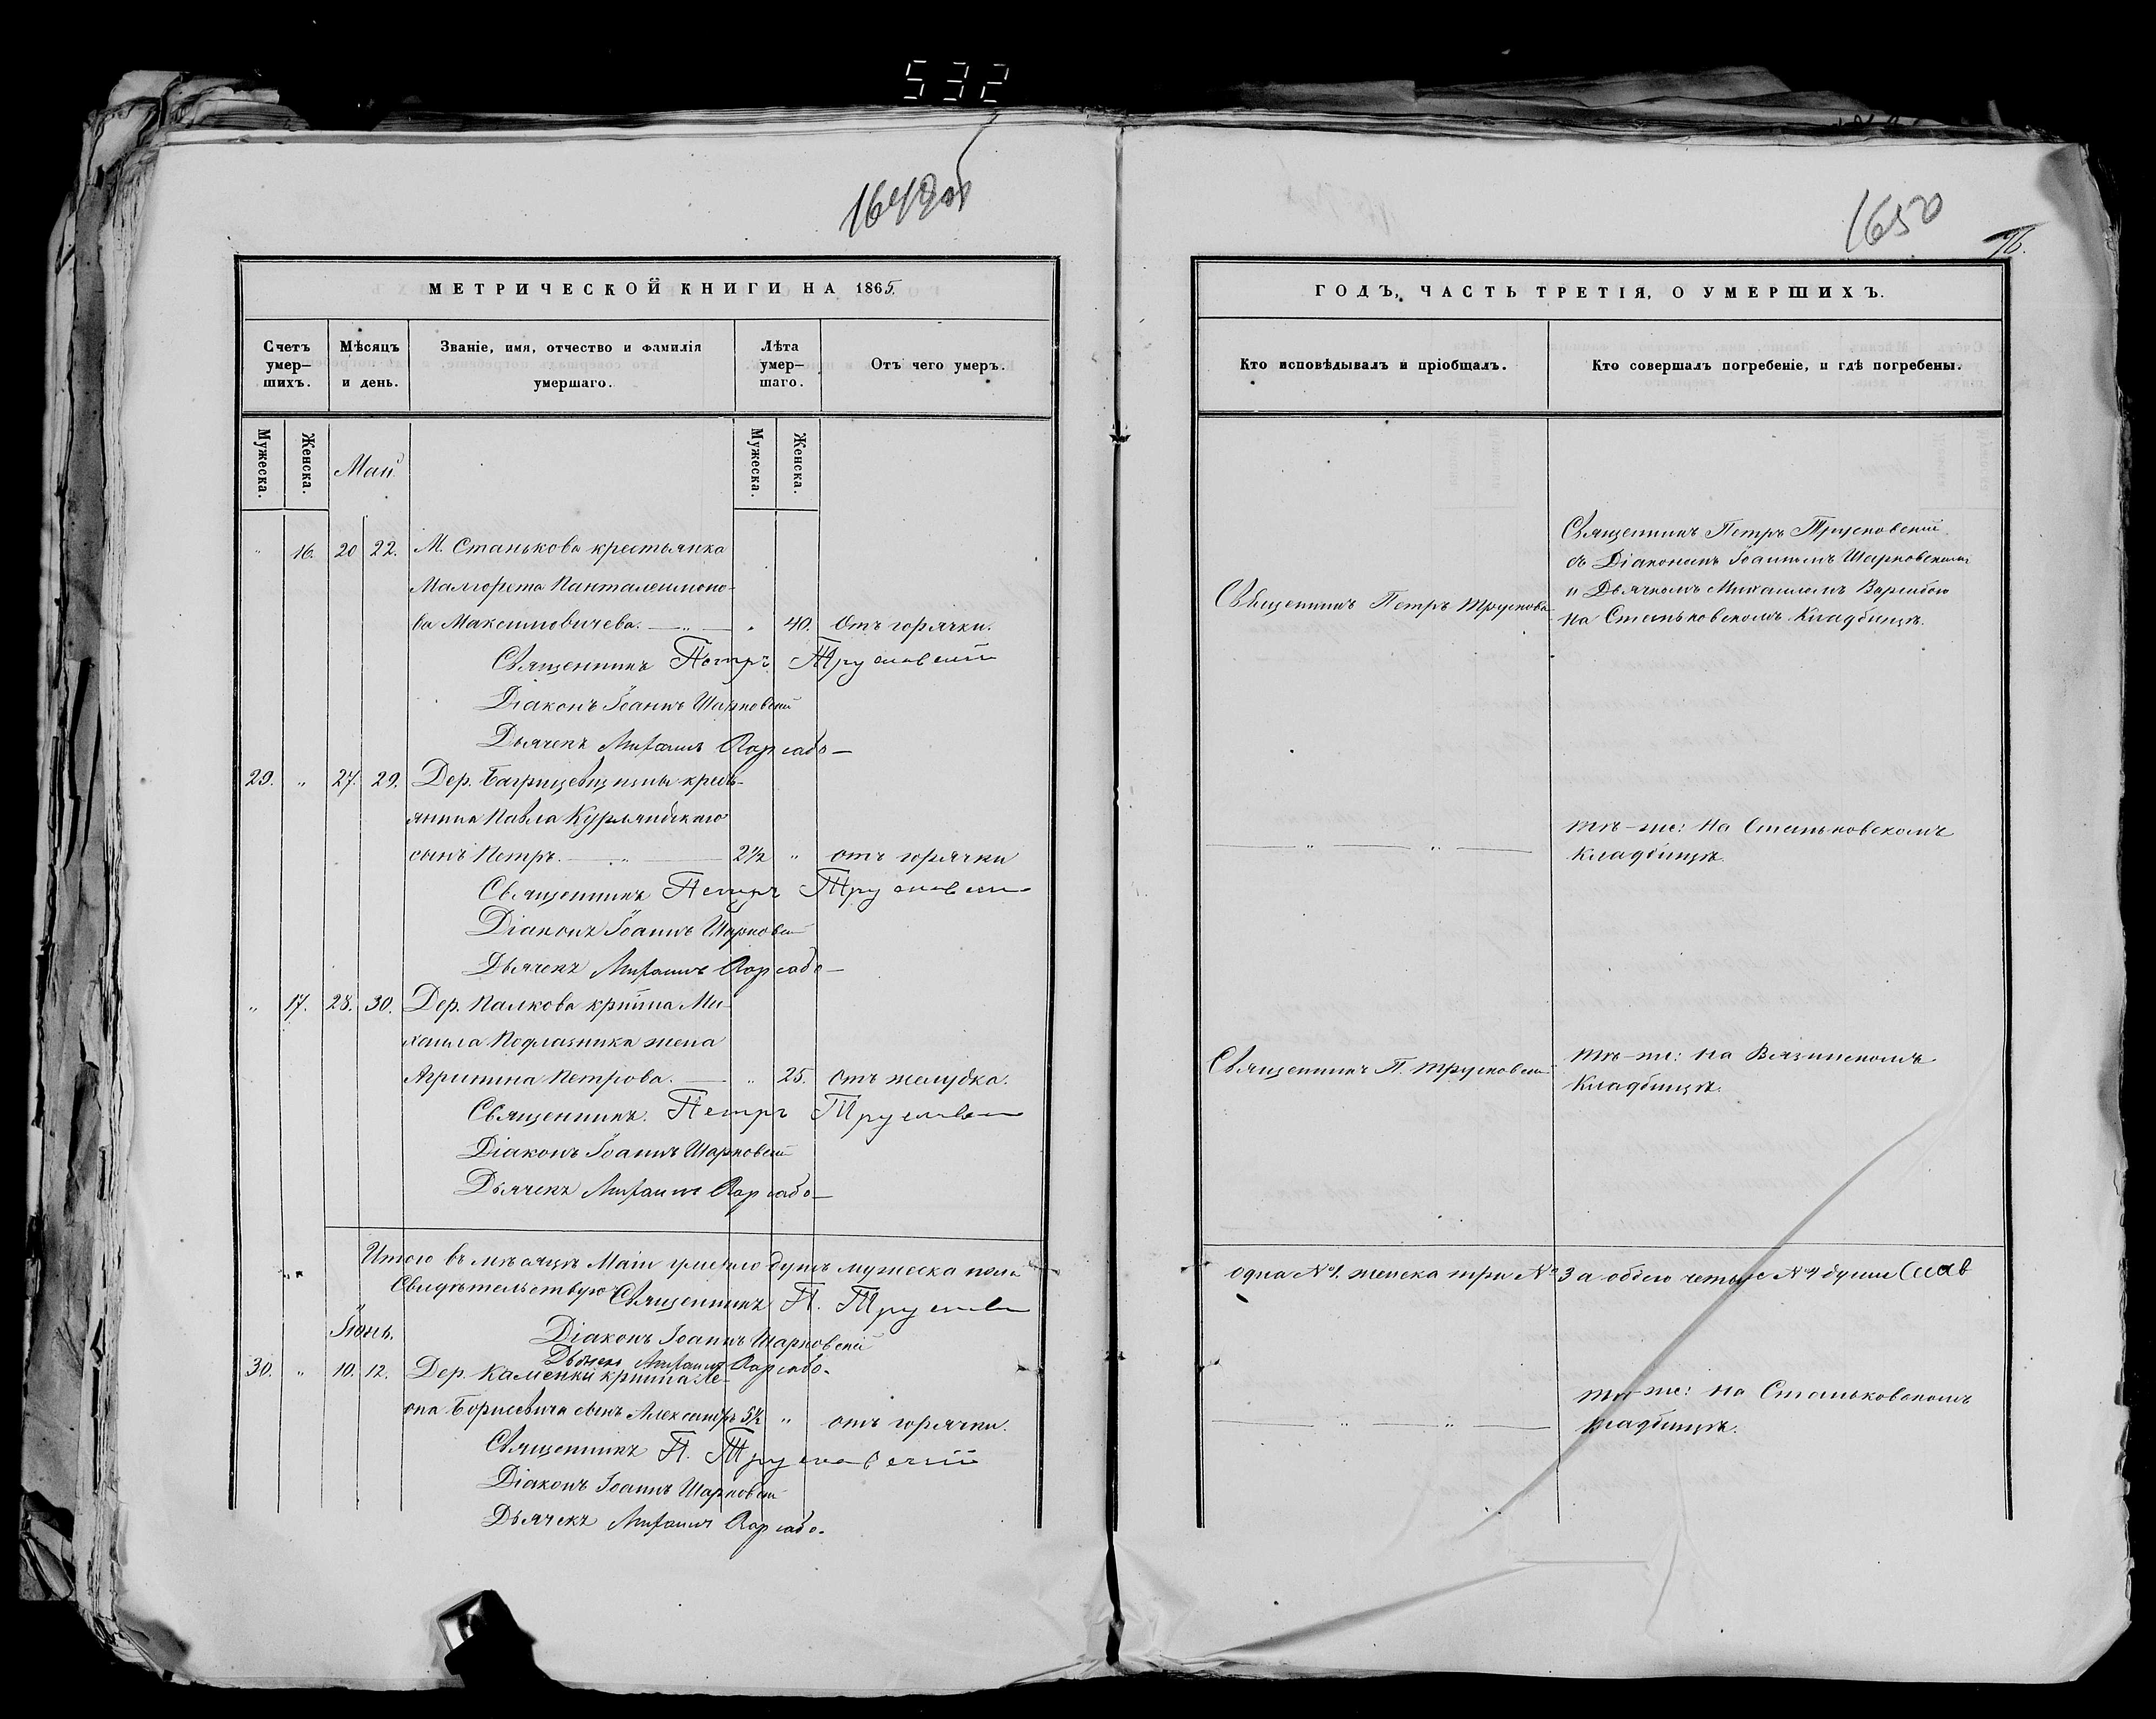 532
1649об
1650
76.
МЕТРИЧЕСКОЙ КНИГИ НА 1865.
Счетъ умер-шихъ.
Мѣсяцъ и день.
Званіе, имя, отчество и фамилія умершаго.
Лѣта умер-шаго.
Отъ чего умеръ.
Мужеска.
Женска.
Май
Мужеска.
Женска.
„ 16. 20 22. М. Станькова крестьянка
Малгорета Панталеимоно-
ва Максимовичева. — „ — „ 40. Отъ горячки.
Священникъ Петръ Трусковскій
Діаконъ Іоаннъ Шарковскій
Дьячекъ Михаилъ
29. „ 27. 29. Дер. кресть-
янина Павла Курляндскаго
сынъ Петръ. — „ — 2½ „ отъ горячки
Священникъ Петръ Трусковскій
Діаконъ Іоаннъ Шарковскій
Дьячекъ Михаилъ
„ 17. 28. 30. Дер. Палкова кр–нина Ми-
хаила Подлазника жена
Агрипина Петрова. — „ 25. Отъ желудка.
Священникъ. Петръ Трусковскій
Діаконъ Іоаннъ Шарковскій
Дьячекъ Михаилъ
Итого въ мѣсяцѣ Маіи умерло душъ мужеска пола
Свидѣтельствую Священникъ П. Трусковскій
Іюнь.
Діаконъ Іоаннъ Шарковскій
Дьячекъ Михаилъ
30. „ 10. 12. Дер. Каменки кр–нина Ле-
она Борисевича сынъ Александръ 5½ „ отъ горячки.
Священникъ П. Трусковскій
Діаконъ Іоаннъ Шарковскій
Дьячекъ Михаилъ
ГОДЪ, ЧАСТЬ ТРЕТІЯ, О УМЕРШИХЪ.
Кто исповѣдывалъ и пріобщалъ.
Кто совершалъ погребеніе, и гдѣ погребены.
Священникъ Петръ Трусковскій
съ Діакономъ Іоанномъ Шарковскимъ
и Дьячкомъ Михаиломъ
Священникъ Петръ Трусковс
на Станьковскомъ Кладбищѣ.
— „ — „ — тѣ-же: на Станьковскомъ
Кладбищѣ.
Священникъ П. Трусковскій
тѣ-же: на Вязинскомъ
Кладбищѣ.
одна №1. женска три №3 а обоего четыре №4 души
— „ — „ — тѣ-же: на Станьковскомъ
кладбищѣ.